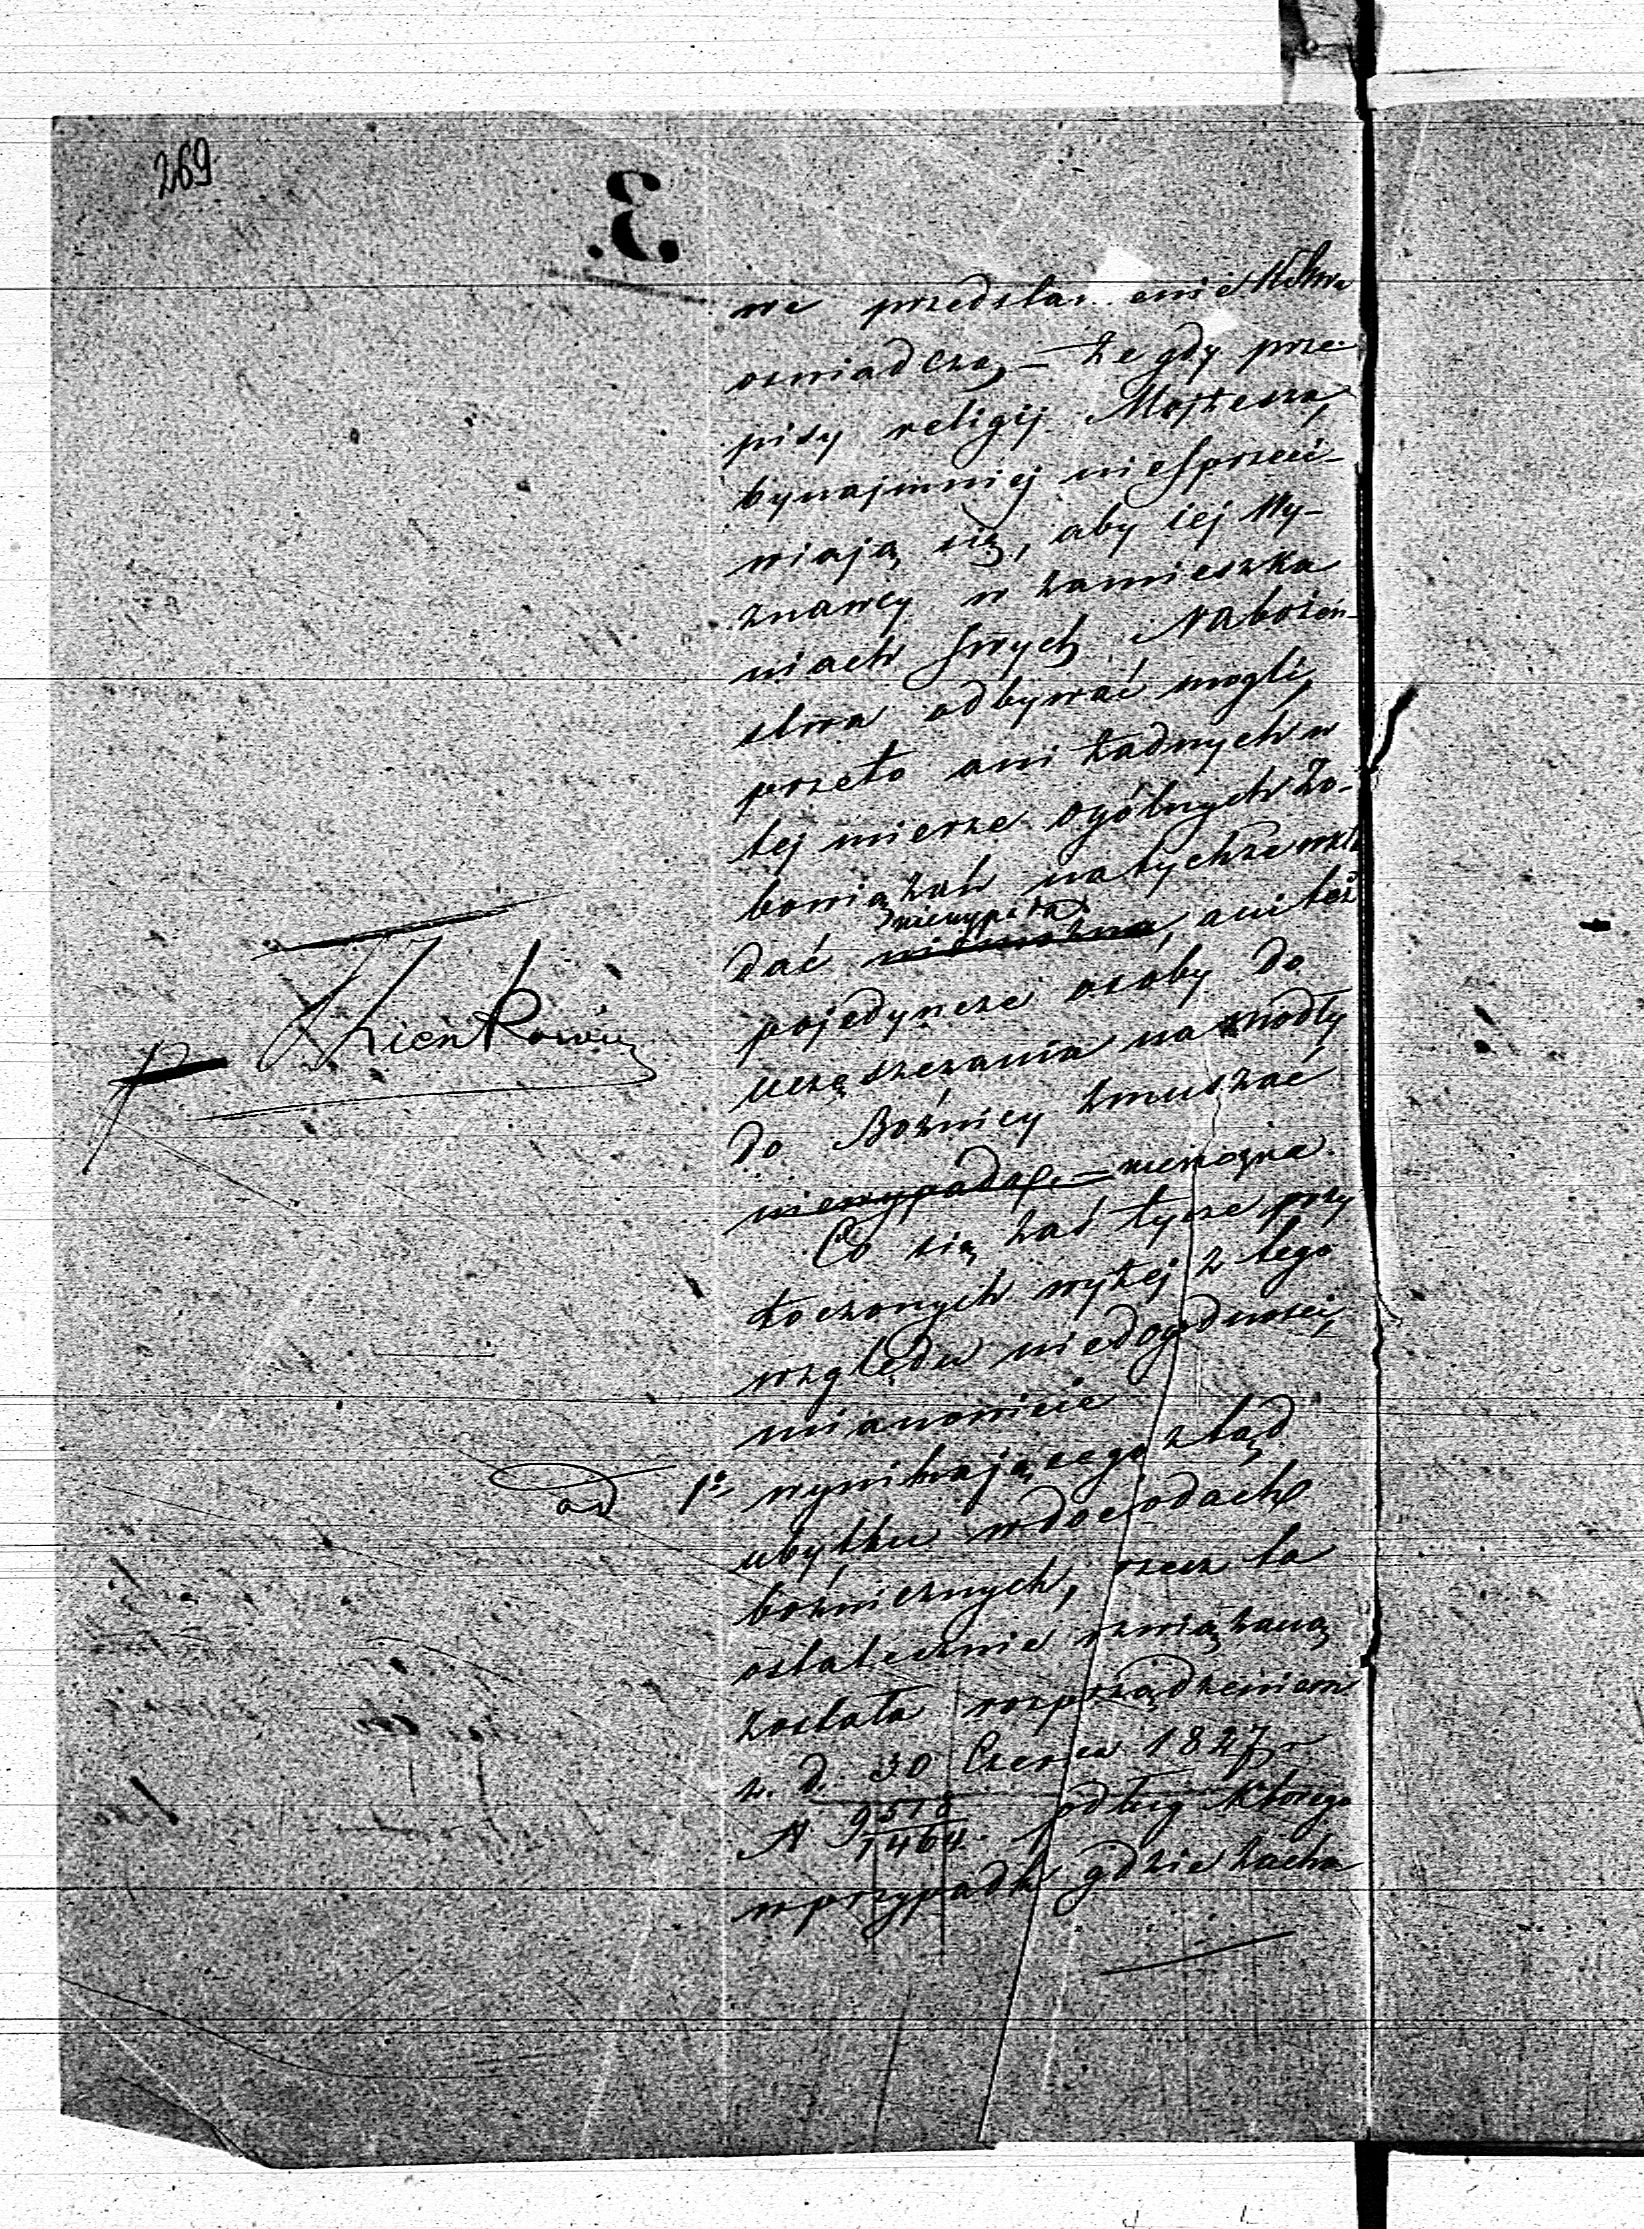 269
3.
we przedsta.. enie
oswiadcza, – że gdy prze-
pisy religij Mojżesza,
bynajmniej niesprzeci-
wiają się, aby iej Wy-
znawcy w zamieszka
niach swych Nabożeń-
stwa odbywać mogli,
przeto ani żadnych w
tej mierze ogólnych Zo-
bowiązań na tychże wkła
niewypada
dać niemożna, ani też
pojedyncze osoby do
uczęszczania na modły
do Bożnicy zmuszać
niewypada, – niemożna
Co się zaś tycze przy
toczonych wyżej z tego
względu niedogodności,
mianowicie
ad 1o wynikającego ztąd
ubytku w dochodach
bożnicznych, rzecz ta
ostatecznie rozwiązaną
została rozporządzeniem
z. d. 30 Czerwca 1827 r
N 9518/1464. podług którego
w przypadku gdzie zacho
Zienkowicz